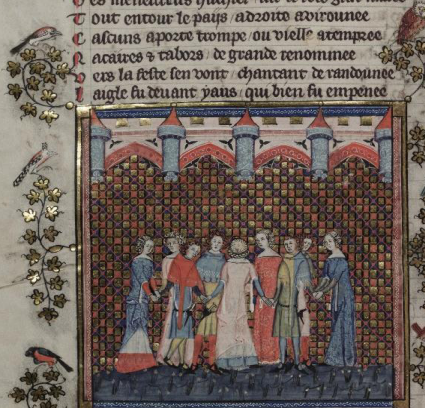 Tout entour le pays adroite avirounee
Cascuns aporte trompe ou vielle atempree
Nacaires & tabors de grande renommee
Vers la feste sen vont chantant de randounee
laigle fu devant yaus qui bien fu empenee